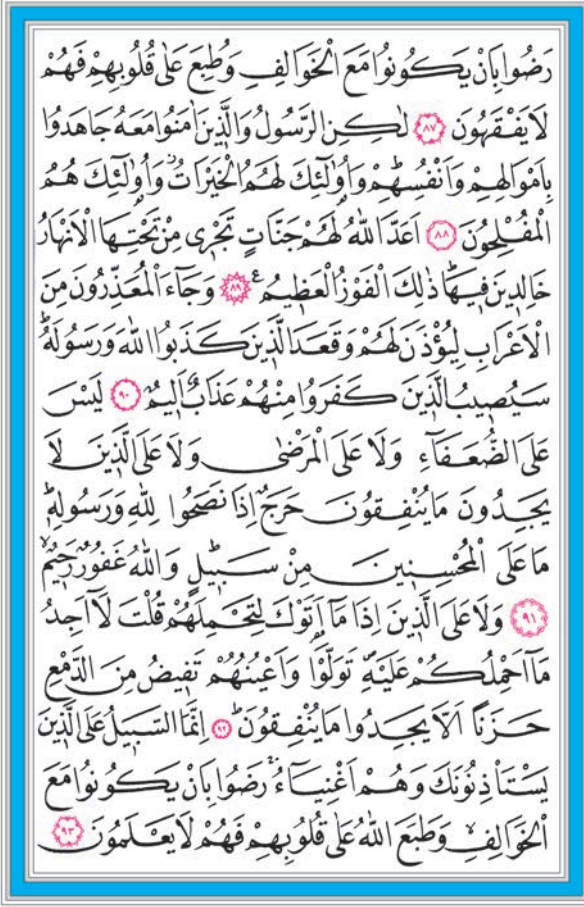 رَضُوا بِاَنْ يَكُونُوا مَعَ الْخَوَالِفِ وَطُبِعَ عَلٰى قُلُوبِهِمْ فَهُمْ
لَا يَفْقَهُونَ ﴿٨٧﴾ لٰكِنِ الرَّسُولُ وَالَّذ۪ينَ اٰمَنُوا مَعَهُ جَاهَدُوا
بِاَمْوَالِهِمْ وَاَنْفُسِهِمْۜ وَاُو۬لٰٓئِكَ لَهُمُ الْخَيْرَاتُۘ وَاُو۬لٰٓئِكَ هُمُ
الْمُفْلِحُونَ ﴿٨٨﴾ اَعَدَّ اللّٰهُ لَهُمْ جَنَّاتٍ تَجْر۪ي مِنْ تَحْتِهَا الْاَنْهَارُ
خَالِد۪ينَ ف۪يهَاۜ ذٰلِكَ الْفَوْزُ الْعَظ۪يمُ۟ ﴿٨٩﴾ وَجَٓاءَ الْمُعَذِّرُونَ مِنَ
الْاَعْرَابِ لِيُؤْذَنَ لَهُمْ وَقَعَدَ الَّذ۪ينَ كَذَبُوا اللّٰهَ وَرَسُولَهُۜ
سَيُص۪يبُ الَّذ۪ينَ كَفَرُوا مِنْهُمْ عَذَابٌ اَل۪يمٌ ﴿٩٠﴾ لَيْسَ
عَلَى الضُّعَفَٓاءِ وَلَا عَلَى الْمَرْضٰى وَلَا عَلَى الَّذ۪ينَ لَا
يَجِدُونَ مَا يُنْفِقُونَ حَرَجٌ اِذَا نَصَحُوا لِلّٰهِ وَرَسُولِه۪ۜ
مَا عَلَى الْمُحْسِن۪ينَ مِنْ سَب۪يلٍۜ وَاللّٰهُ غَفُورٌ رَح۪يمٌۙ
﴿٩١﴾ وَلَا عَلَى الَّذ۪ينَ اِذَا مَٓا اَتَوْكَ لِتَحْمِلَهُمْ قُلْتَ لَٓا اَجِدُ
مَٓا اَحْمِلُكُمْ عَلَيْهِۖ تَوَلَّوْا وَاَعْيُنُهُمْ تَف۪يضُ مِنَ الدَّمْعِ
حَزَنًا اَلَّا يَجِدُوا مَا يُنْفِقُونَۜ ﴿٩٢﴾ اِنَّمَا السَّب۪يلُ عَلَى الَّذ۪ينَ
يَسْتَأْذِنُونَكَ وَهُمْ اَغْنِيَٓاءُۚ رَضُوا بِاَنْ يَكُونُوا مَعَ
الْخَوَالِفِۙ وَطَبَعَ اللّٰهُ عَلٰى قُلُوبِهِمْ فَهُمْ لَا يَعْلَمُونَ ﴿٩٣﴾